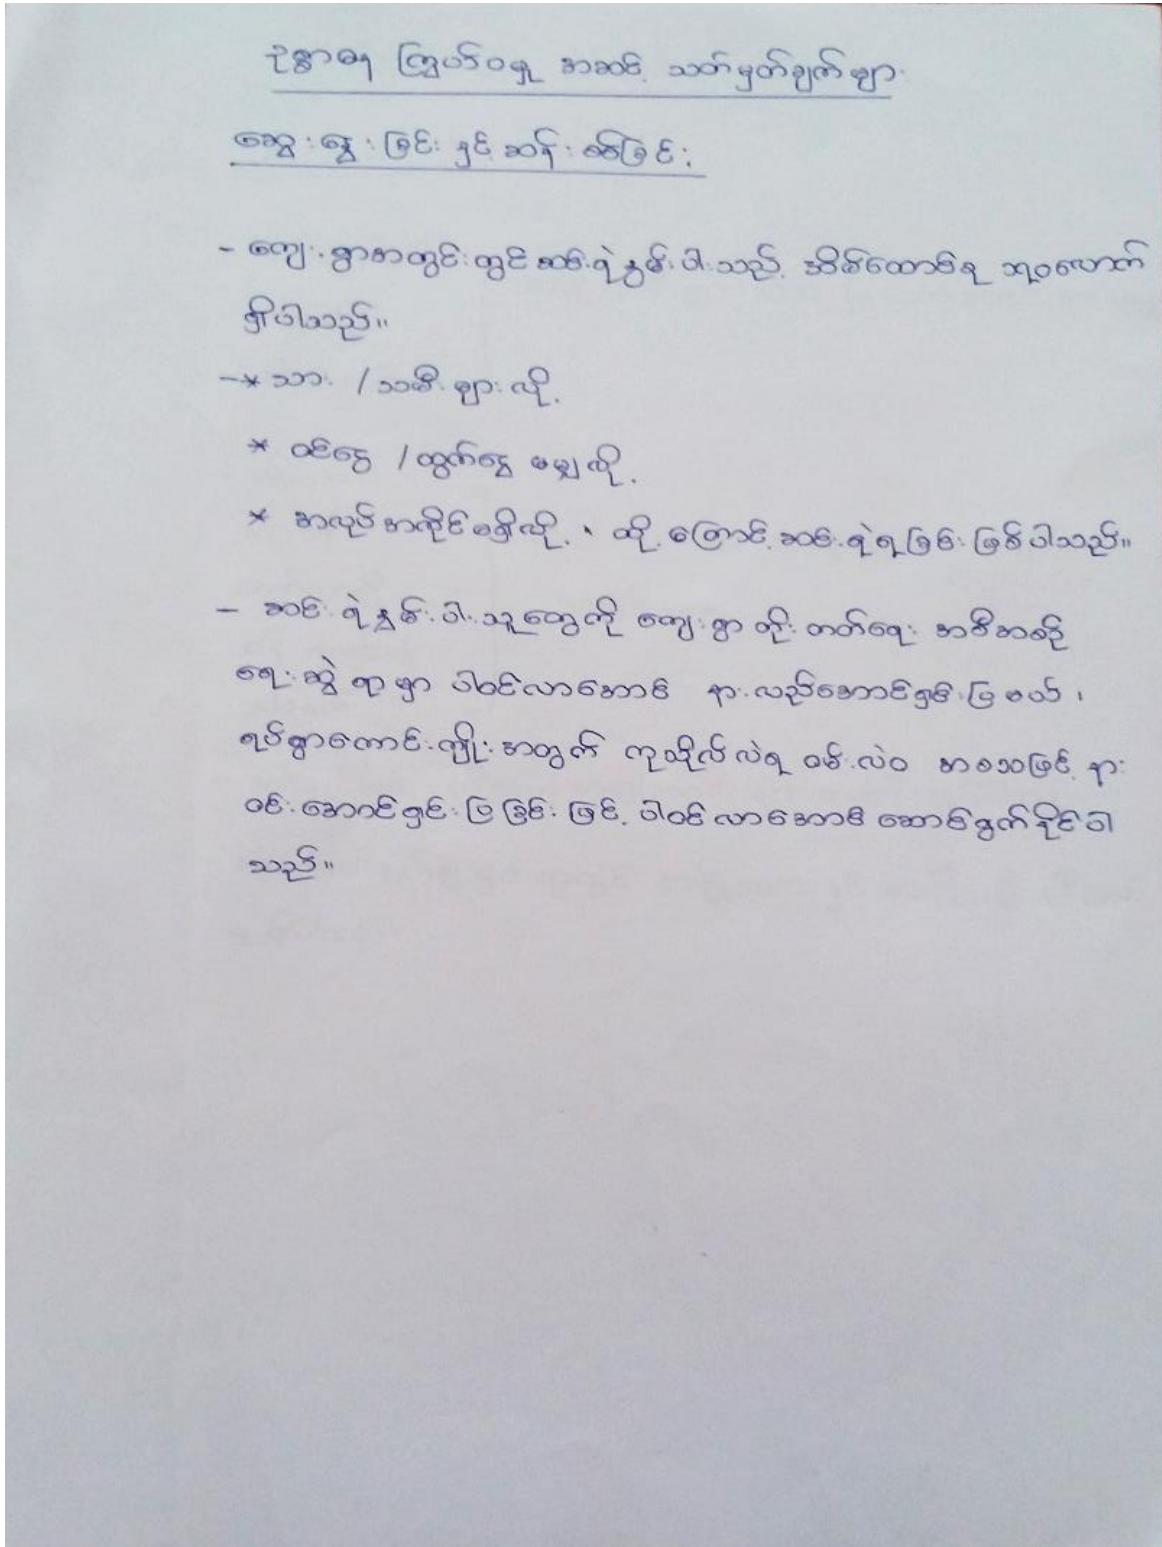 ဥစ္စာဓန ကြွယ်ဝမှု အဆင့် သတ်မှတ်ချက်များ
ဆွေးနွေးခြင်း နှင့် ဆန်းစစ်ခြင်း
- ကျေးရွာအတွင်းတွင် ဆင်းရဲနွမ်းပါးသည့် အိမ်ထောင်စု ၁၃၀လောက်
ရှိပါသည်။
-* သား / သမီး များလို့
* ဝင်ငွေ / ထွက်ငွေ မမျှလို့
* အလုပ်အကိုင်မရှိလို့ ၊ ထို့ကြောင့် ဆင်းရဲရခြင်း ဖြစ်ပါသည်။
- ဆင်းရဲနွမ်းပါးသူတွေကို ကျေးရွာ တိုးတတ်ရေး အစီအစဉ်
ရေးဆွဲ ရာမှာ ပါဝင်လာအောင် နားလည်အောင်ရှင်းပြ မယ် ၊
ရပ်ရွာကောင်းကျိုးအတွက် ကုသိုလ်လဲရ ဝမ်းလဲဝ အစသဖြင့် နား
ဝင်အောင်ရှင်းပြခြင်းဖြင့် ပါဝင်လာအောင် ဆောင်ရွက်နိုင်ပါ
သည်။